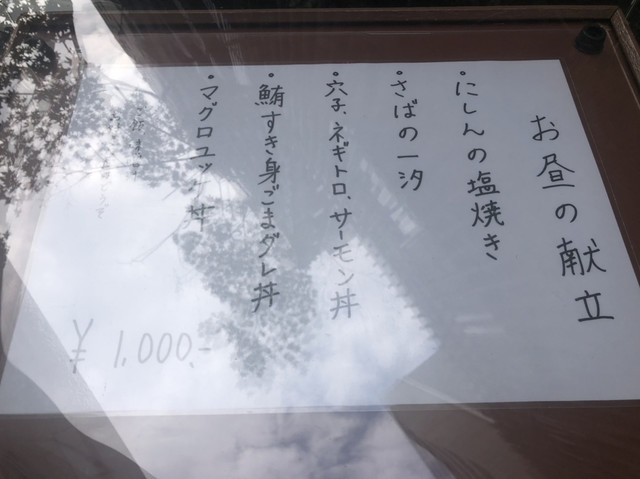 お昼の献立
・にしんの塩焼き
・さばの一汐
・穴子、ネギトロ、サーモン丼
・鮪すき身ごまダレ丼
・マグロユッケ丼
¥1,000.-